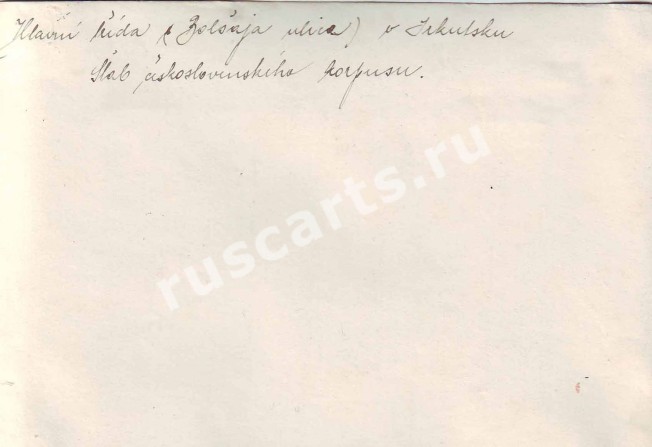 Hlavní třída (Bolšaja ulica) v Irkutsku
Štáb československého korpusu.
ruscarts.ru